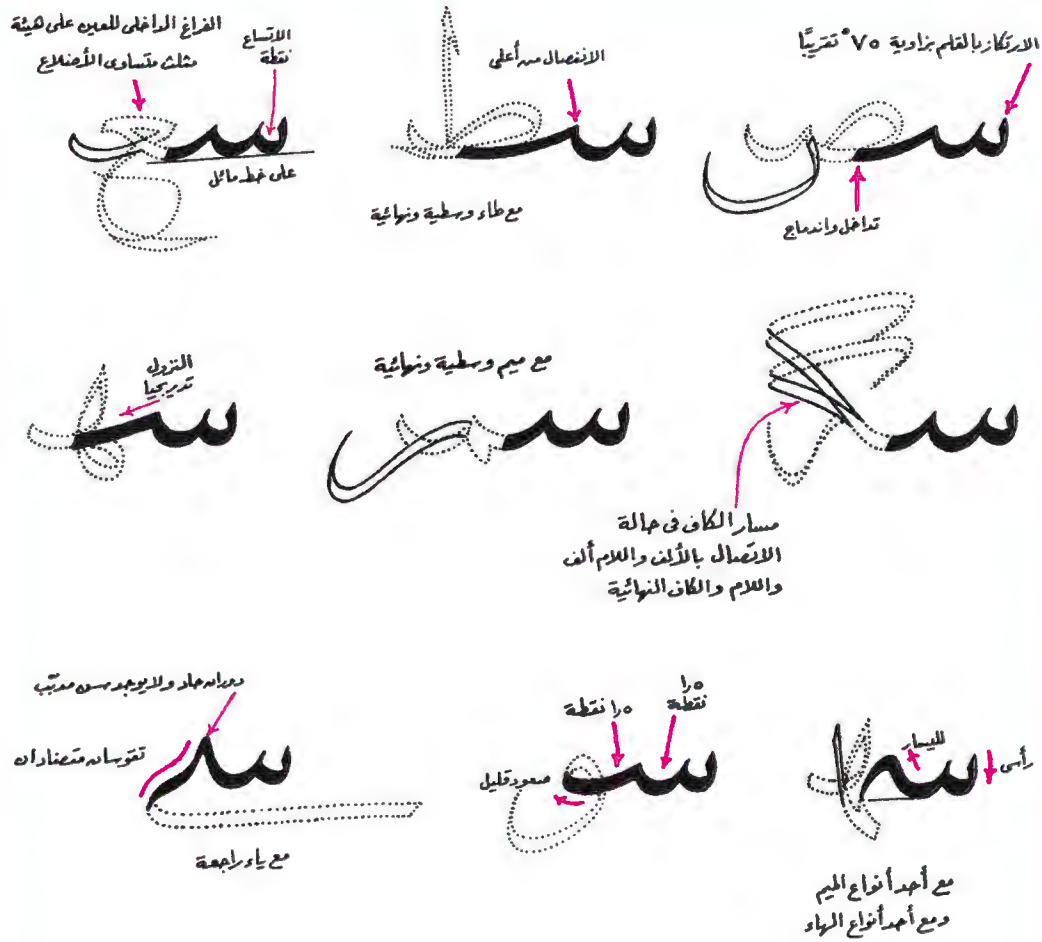 الارتكاز بالقلم بزاوية ٧٥° تقريبًا
تداخل واندماج
الانفصال من أعلى
مع طاء وسطية ونهائية
الاتساع
نقطة
الفراغ الداخلى للعين على هيئة
مثلث متساوى الأضلاع
على خط مائل
مسار الكاف فى حالة
الاتصال بالألف واللام ألف
واللام والكاف النهائية
مع ميم وسطية ونهائية
النزول
تدريجيا
رأسى
لليسار
مع أحد أنواع الميم
ومع أحد أنواع الهاء
١٫٥
نقطة
١٫٥ نقطة
صعود قليل
دوران حاد ولا يوجد سن مدبّب
تقوسان متضادان
مع ياء راجعة